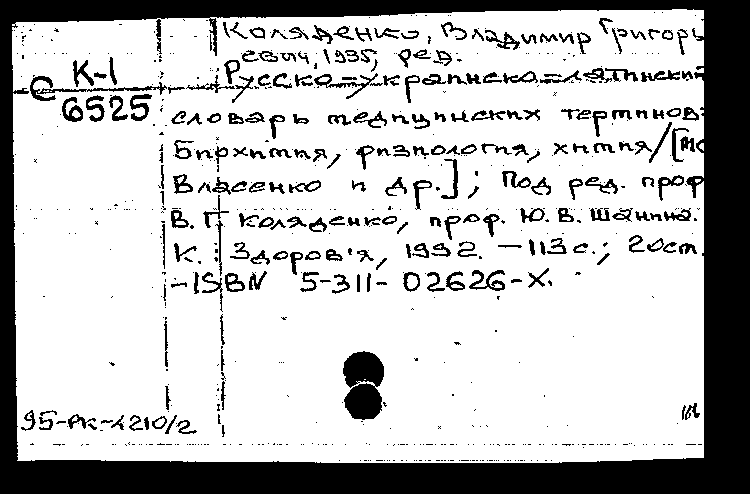 Коляденко, Владимир Григорь
евич, 1935, ред.
С К-1
6525
Русско=украинско=латинский
словарь медицинских терминов:
Биохимия, физиология, химия/[
Власенко и др.]; Под ред. проф
В. Г. Коляденко, проф. Ю. В. Шанина.
К.: Здоров'я, 1992. — 113 с.; 20 см.
-ISBN 5-311-02626-X.
95-РК-4210/2